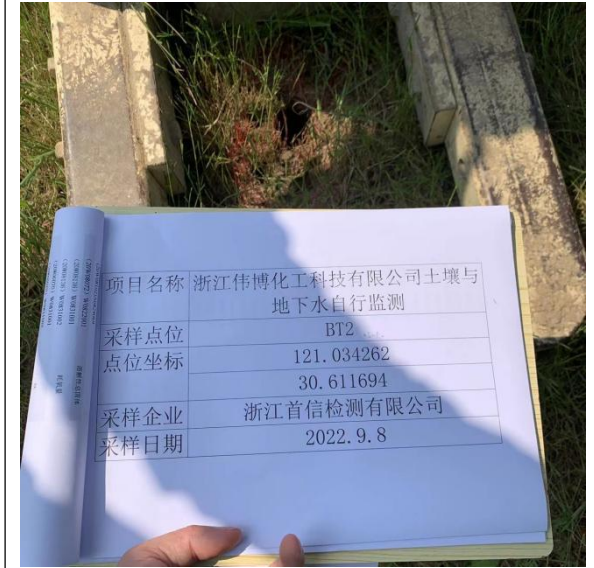 项目名称 浙江伟博化工科技有限公司土壤与
地下水自行监测
采样点位 BT2
点位坐标 121.034262
30.611694
采样企业 浙江首信检测有限公司
采样日期 2022.9.8